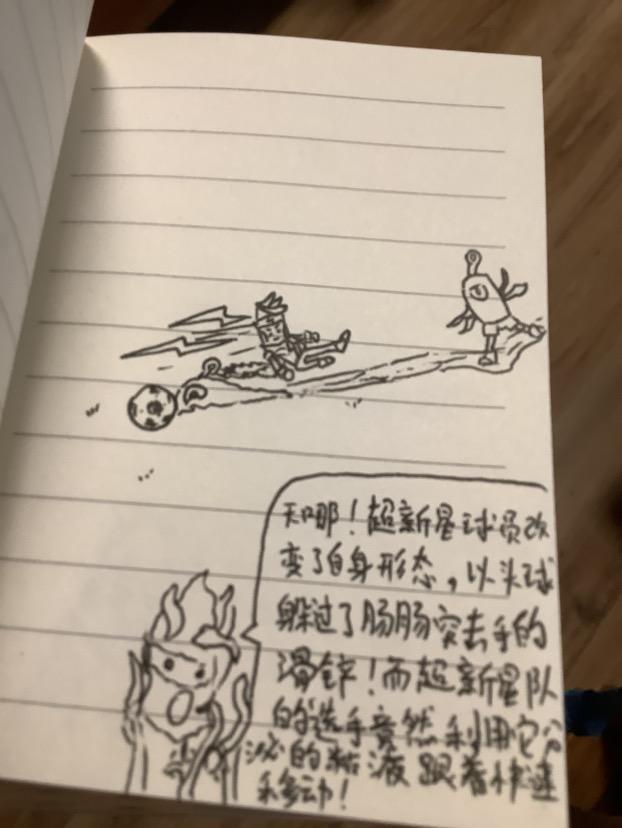 天哪！超新星球员改
变了自身形态，以头球
躲过了肠肠突击手的
滑铲！而超新星队
的选手竟然利用它分
泌的粘液跟着快速
移动！